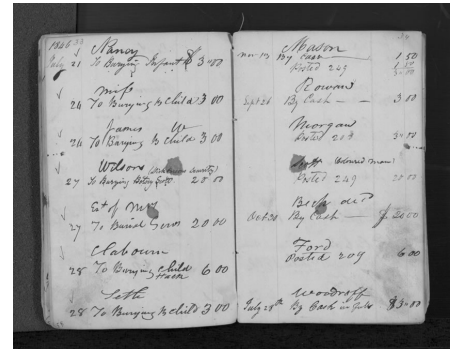 1840
Nancy
July 21 To Burying Infant $ 3.00
Miss
24 To Burying B child 3 00
James W
26 To Burying B child 3 00
Wilson
27 To Burying 20 00
Est of
27 To Burial 20 00
Claborn
28 To Burying child 6 00
Hack
Seth
28 To Burying B child 3 00
Mason
Nov 13 By Cash 1 50
Posted 249
3.00
Rowan
Sept 26 By Cash 3.00
Morgan
Posted 209 3.00
(colored man)
Posted 249 20 00
decd
Oct 30 By Cash 20 00
Ford
Posted 209 6 00
Woodroff
July 28th By Cash in full $3.00